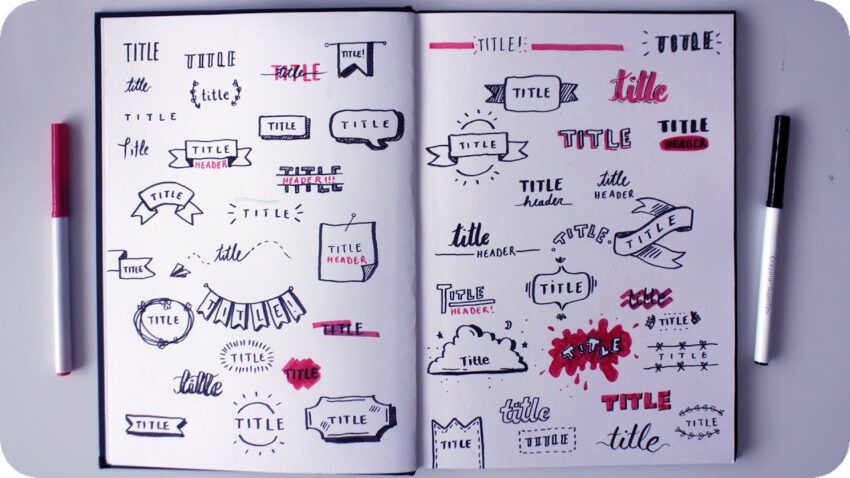 TITLE
TITLE
title
TITLE
TITLE!
title
title
TITLE
TITLE
TITLE
Title
TITLE
HEADER
TITLE
HEADER!!!
TITLE
TITLE
TITLE
HEADER
title
TITLE
TITLE
TITLE
TITLE
TITLE
title
TITLE
TITLE
TITLE
TITLE!
TITLE
TITLE
title
TITLE
TITLE
TITLE
HEADER
TITLE
header
Title
HEADER
title
HEADER
TITLE
TITLE
TITLE
TITLE
HEADER!
title
TITLE
Title
TITLE
TITLE
title
TITLE
TITLE
TITLE
TITLE
title